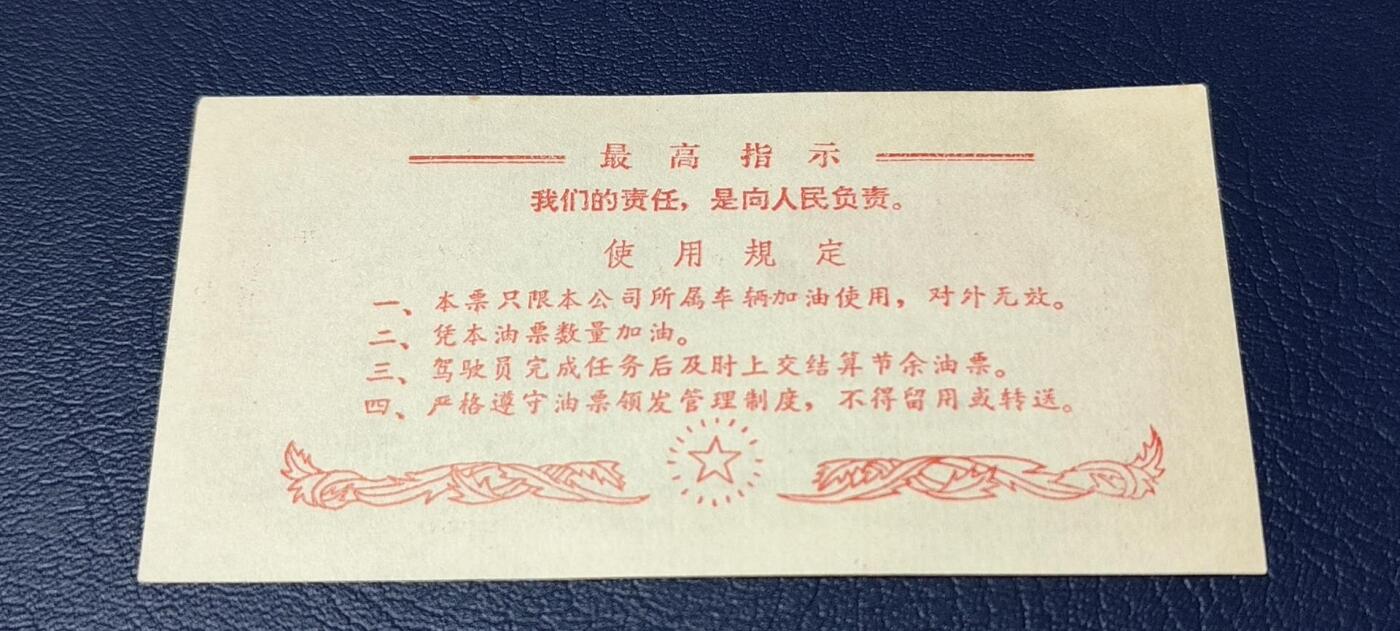 最高指示
我们的责任，是向人民负责。
使用规定
一、本票只限本公司所属车辆加油使用，对外无效。
二、凭本油票数量加油。
三、驾驶员完成任务后及时上交结算节余油票。
四、严格遵守油票领发管理制度，不得留用或转送。